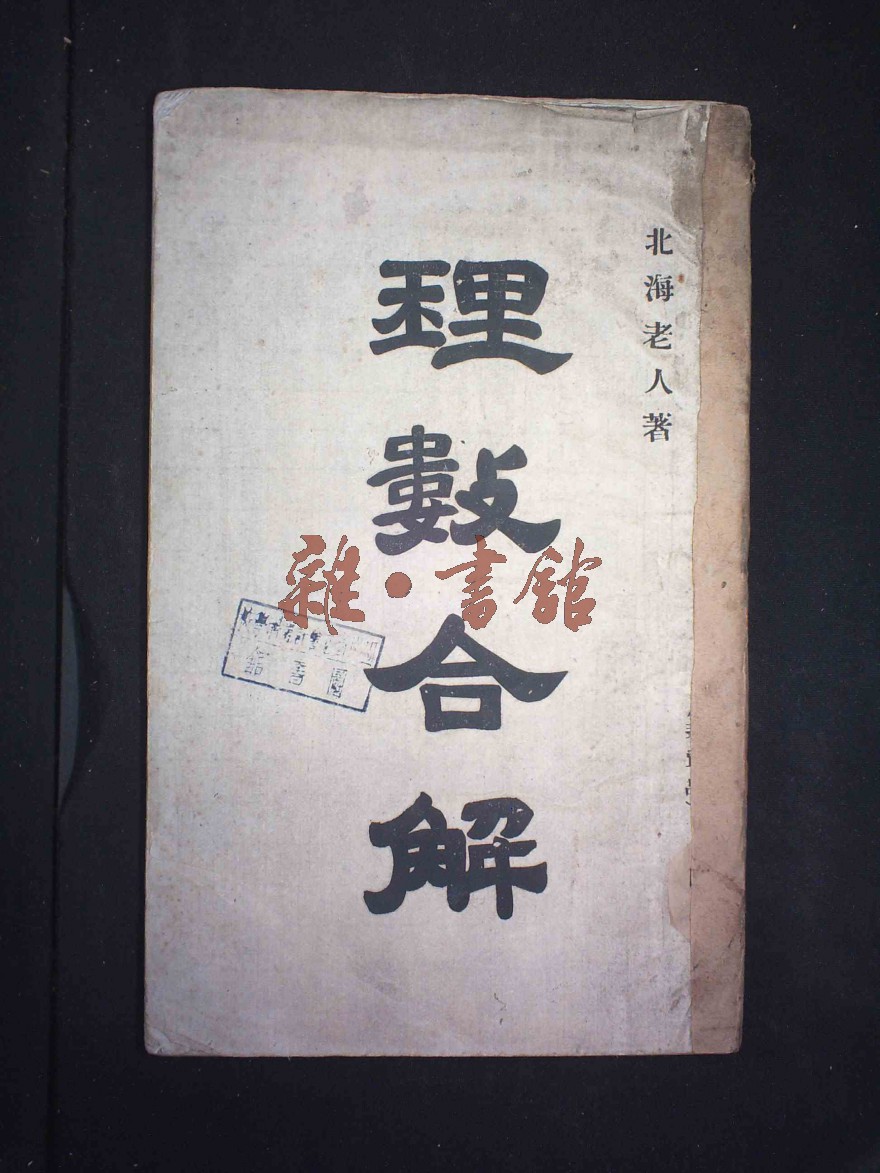 北海老人著
理數合解
雜·書館
圖書館